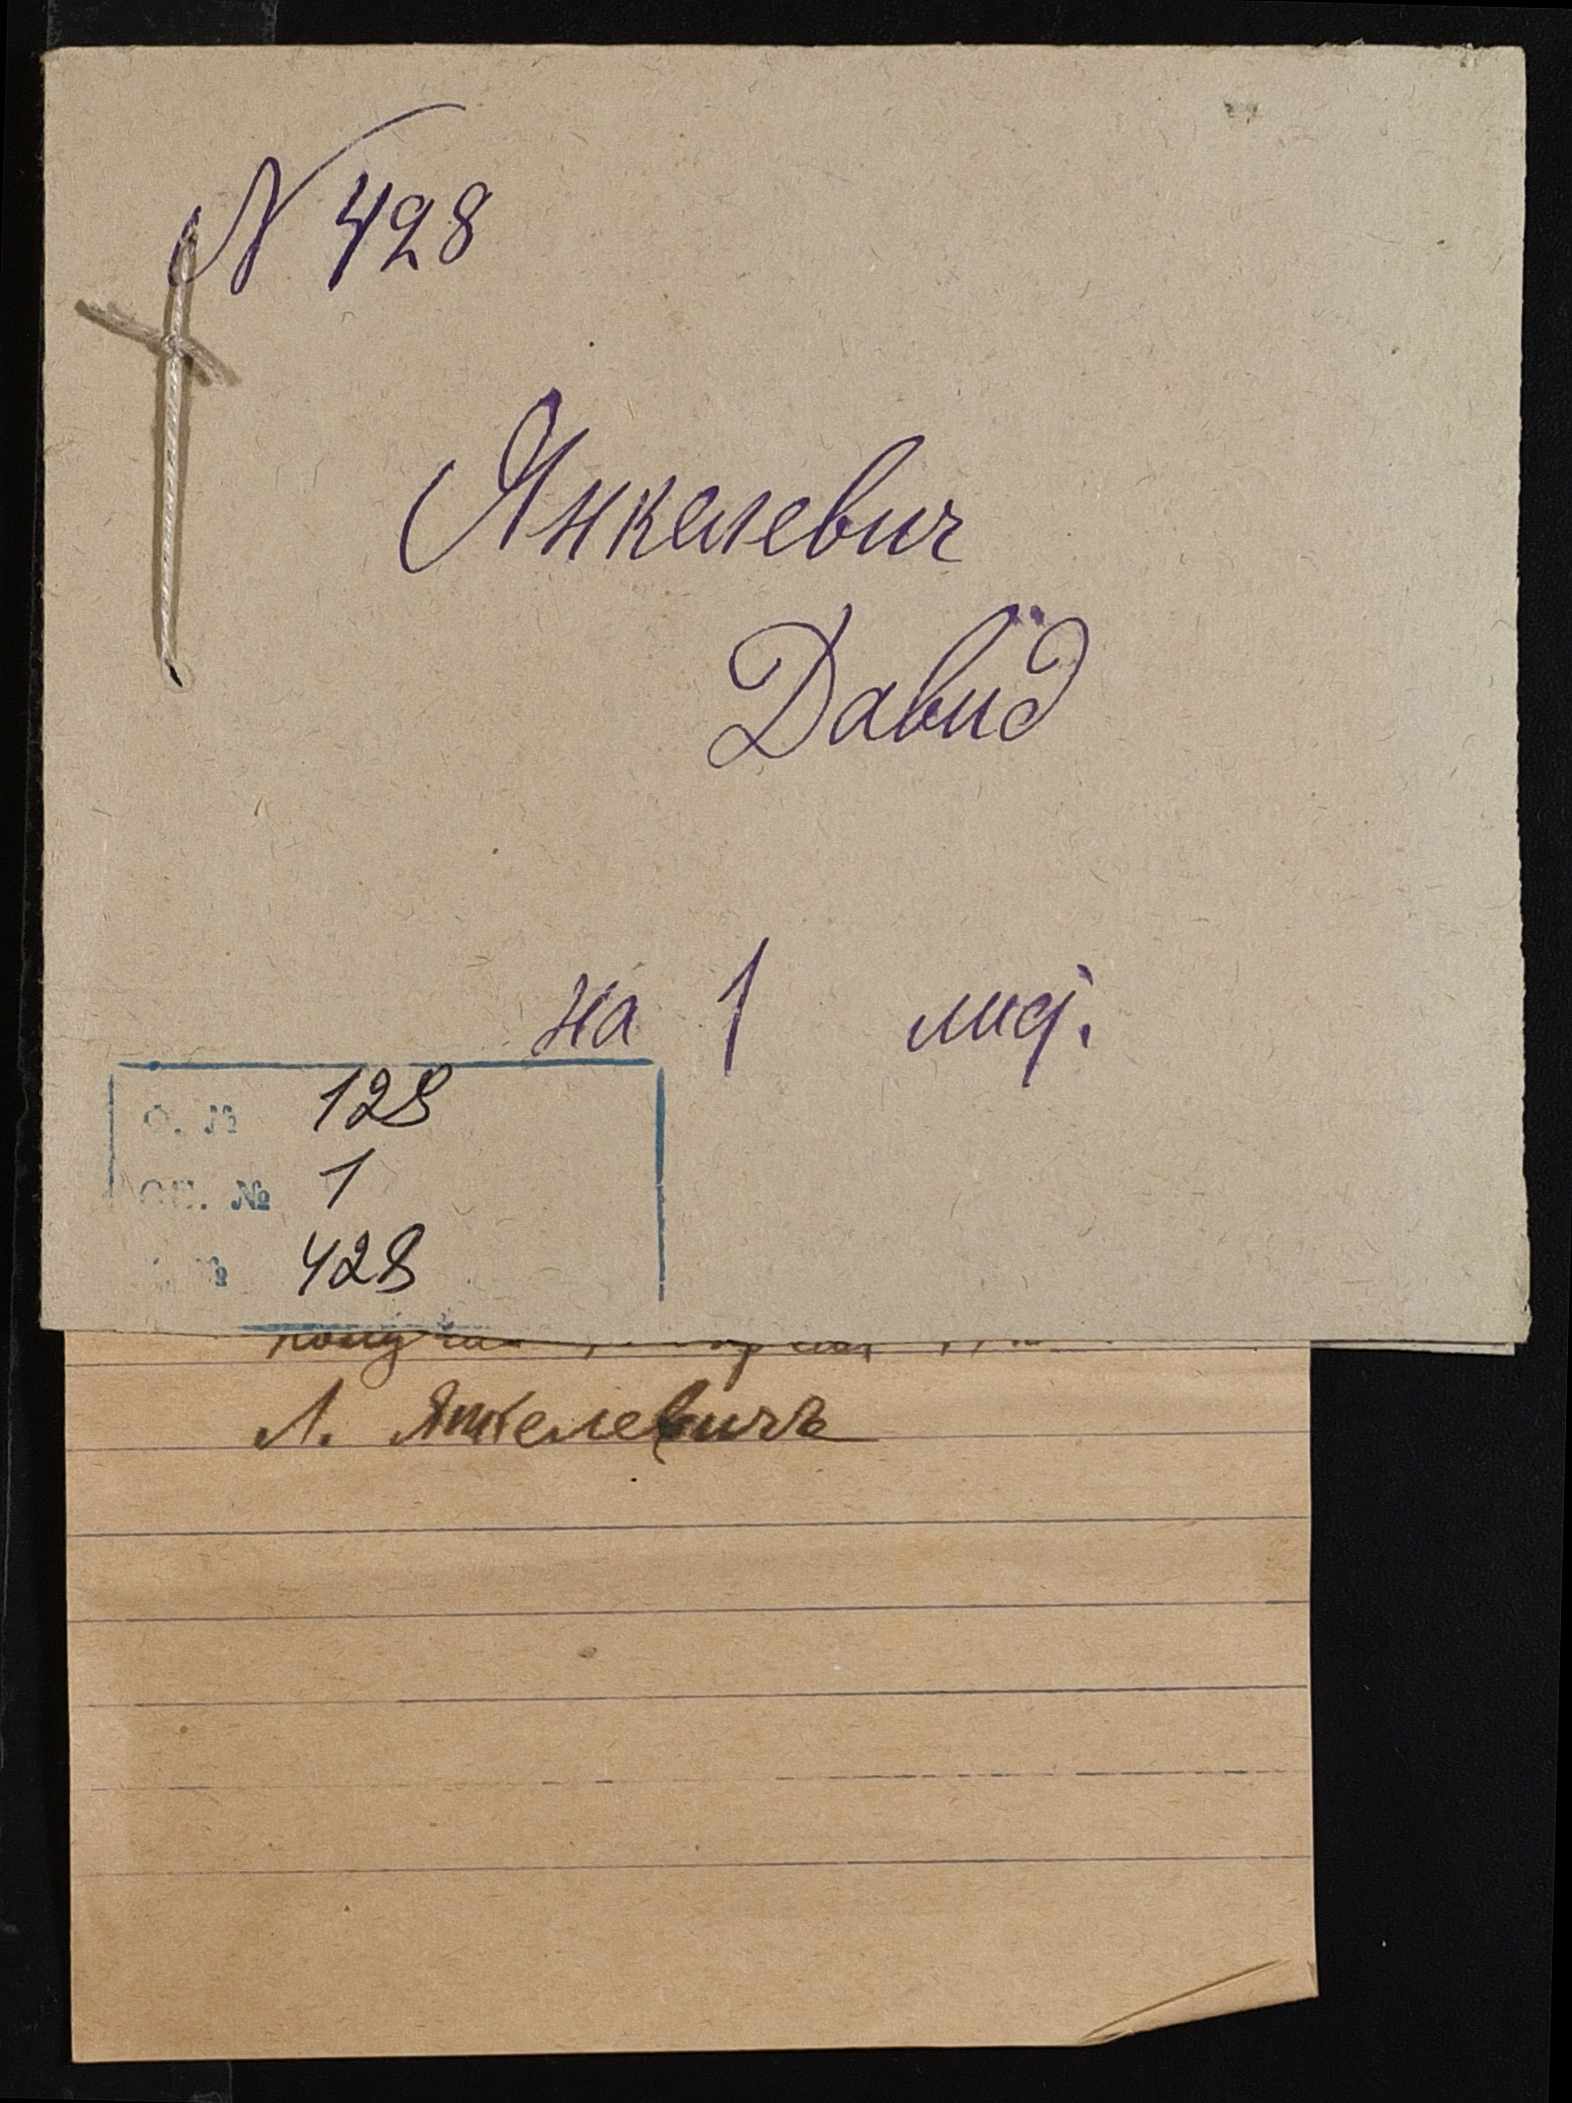 N 428
Янкелевич
Давид
на 1 лис.
Ф. № 128
ОП. № 1
№ 428
Л. Янкелевичъ